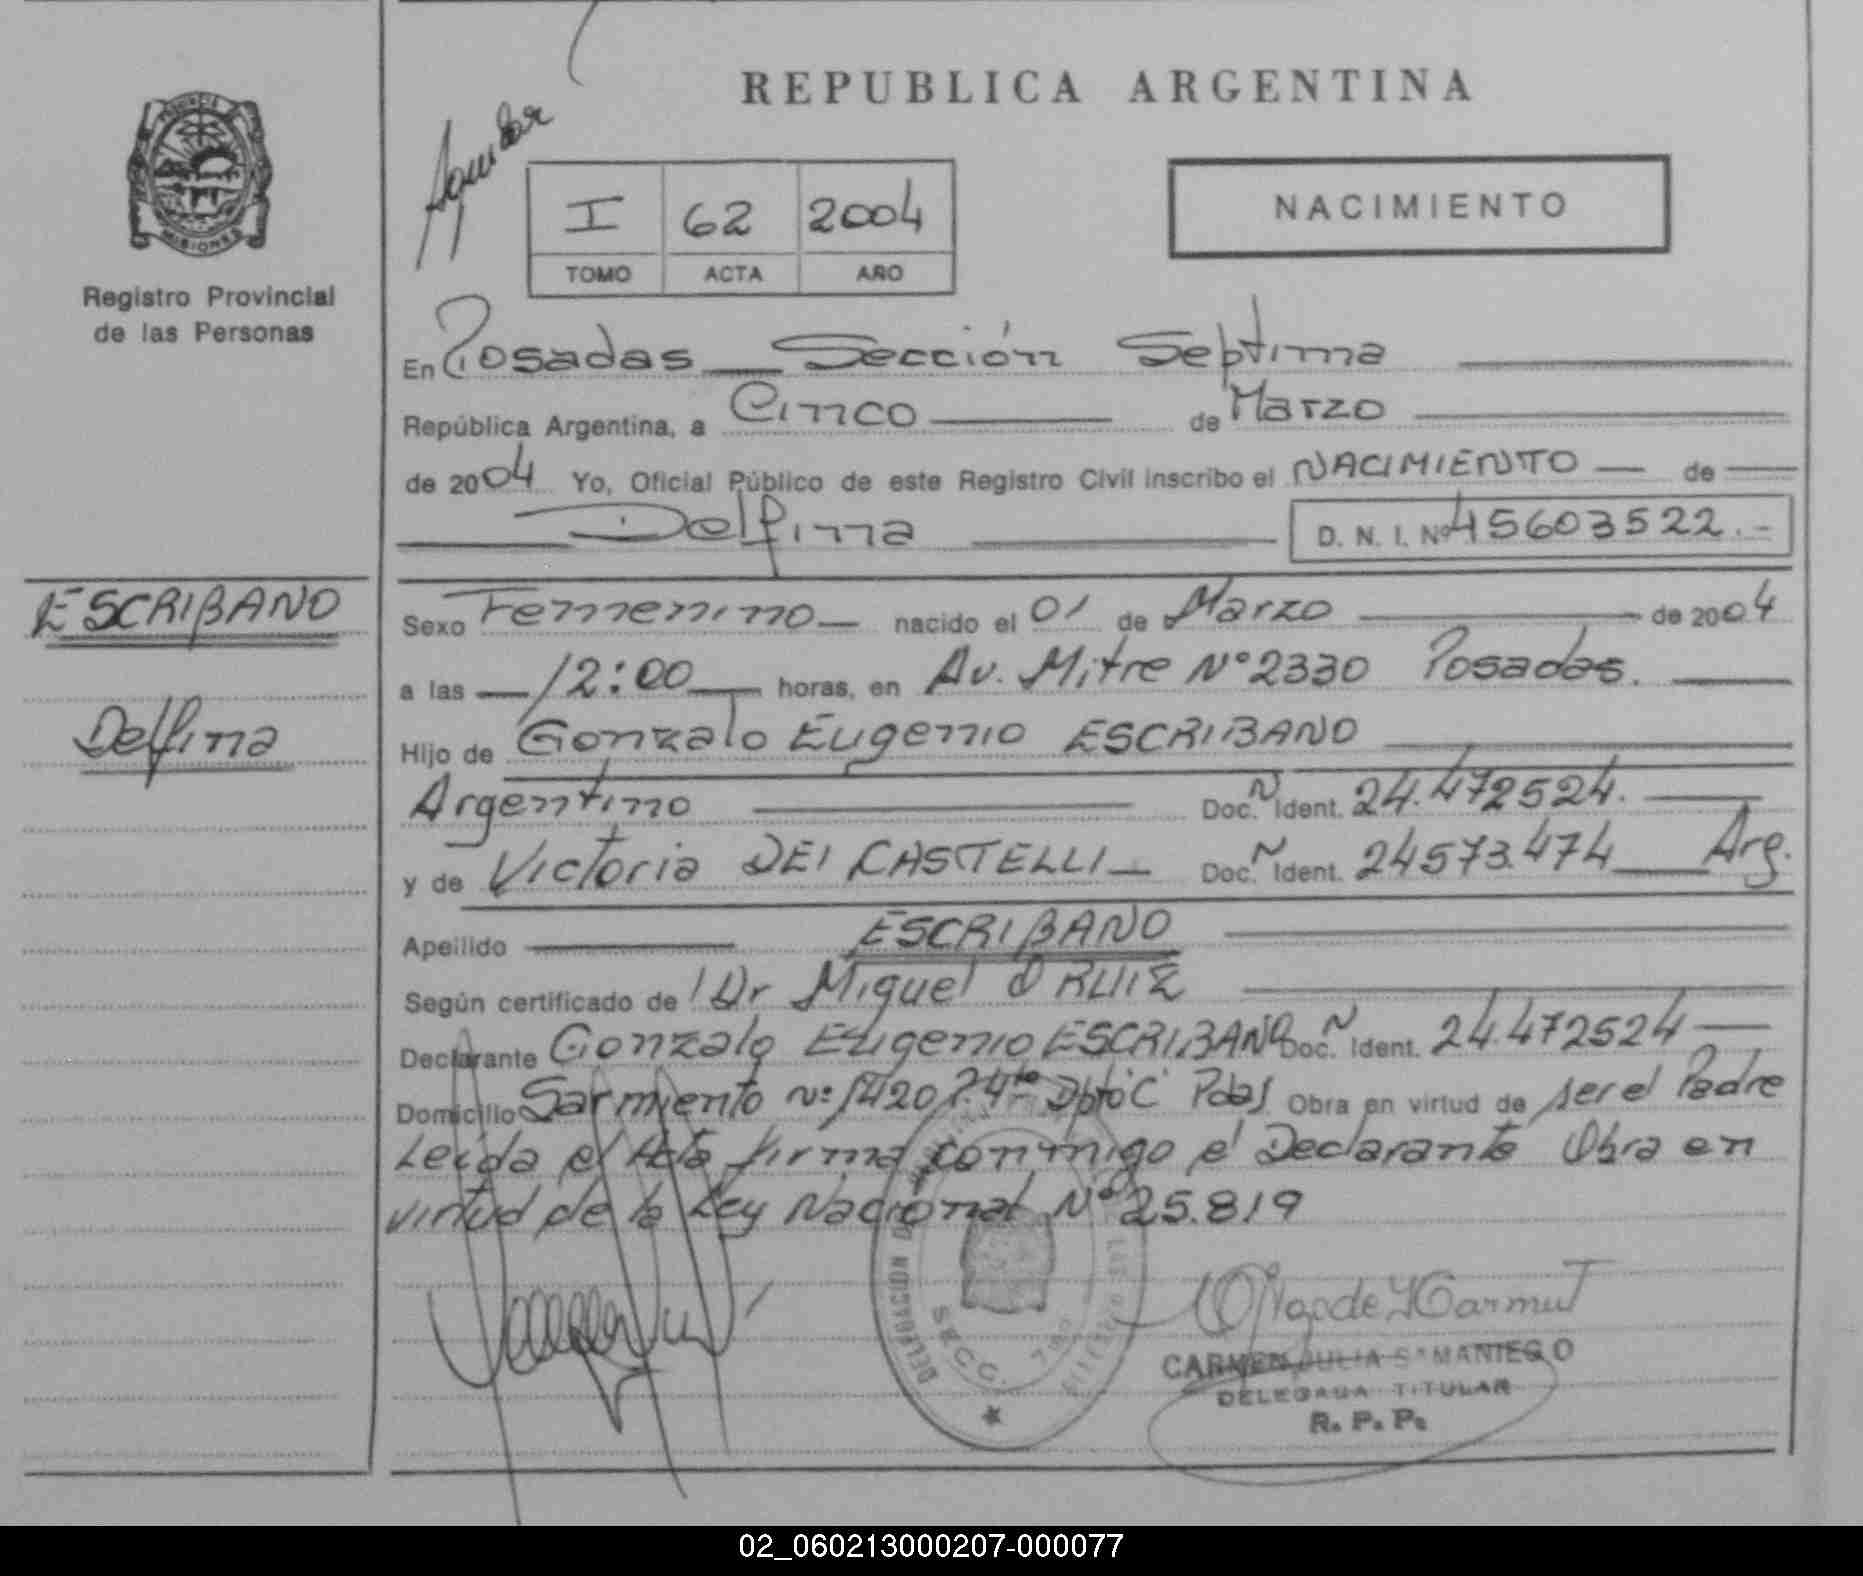 REPUBLICA ARGENTINA
PROVINCIA
MISIONES
Registro Provincial
de las Personas
I 62 2004
TOMO ACTA AÑO
NACIMIENTO
En Posadas Sección Septima
República Argentina, a Cinco de Marzo
de 2004 Yo, Oficial Público de este Registro Civil inscribo el NACIMIENTO de
Delfina D. N. I. Nº 45603522.-
ESCRIBANO
Delfina
Sexo Femenino nacido el 01 de Marzo de 2004
a las 12:00 horas, en Av. Mitre N° 2330 Posadas.
Hijo de Gonzalo Eugenio ESCRIBANO
Argentino Doc. Ident. 24.472524.
y de Victoria DEI CASTELLI Doc. Ident. 24573.474 Arg.
Apellido ESCRIBANO
Según certificado de Dr Miguel O RUIZ
Declarante Gonzalo Eugenio ESCRIBANO Doc. Ident. 24.472524
Domicilio Sarmiento Nº 1420 P. 4to Dpto "C" Pdas Obra en virtud de ser el Padre
Leida el Acta firma conmigo el Declarante Obra en
virtud de la Ley Nacional N° 25.819
DELEGACION
SECC. 7ma
CARMEN JULIA SAMANIEGO
DELEGADA TITULAR
R. P. P.
02_060213000207-000077